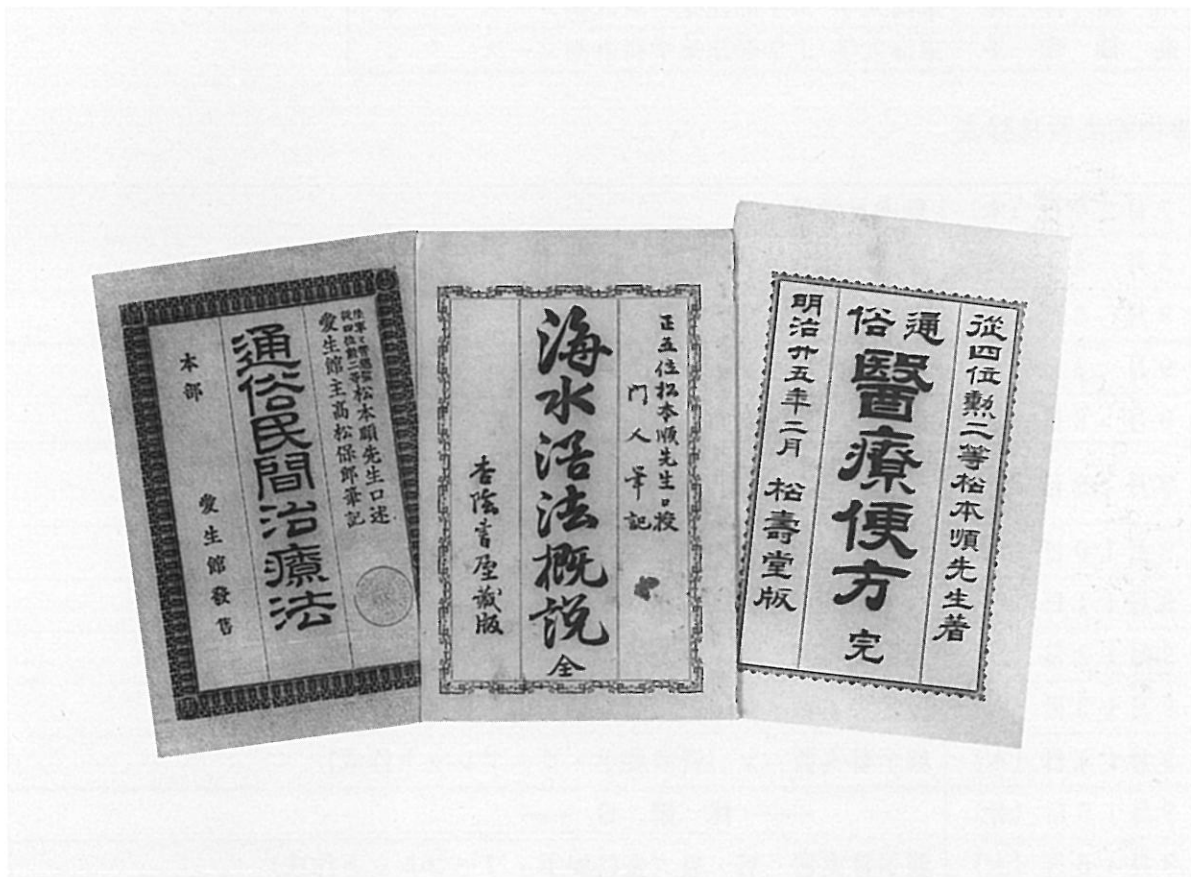 從四位勲二等松本順先生著
通俗
醫療便方 完
明治廿五年二月 松壽堂版
正五位松本順先生口授
門人筆記
海水浴法概説 全
杏陰書屋蔵版
従四位勲二等松本順先生口述
愛生館主高松保郎筆記
通俗民間治療法
本部 愛生館發售